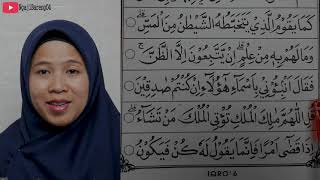 Ngaji Bareng04
كَمَا يَقُوْمُ الَّذِيْ يَتَخَبَّطُهُ الشَّيْطٰنُ مِنَ الْمَسِّ
وَمَا لَهُمْ بِهٖ مِنْ عِلْمٍ اِنْ يَتَّبِعُوْنَ اِلَّا الظَّنَّ
فَقَالَ اَنْبِئُوْنِيْ بِاَسْمَآءِ هٰٓؤُلَآءِ اِنْ كُنْتُمْ صٰدِقِيْنَ
قُلِ اللّٰهُمَّ مٰلِكَ الْمُلْكِ تُؤْتِى الْمُلْكَ مَنْ تَشَآءُ
اِذَا قَضٰٓى اَمْرًا فَاِنَّمَا يَقُوْلُ لَهٗ كُنْ فَيَكُوْنُ
IQRO' 6